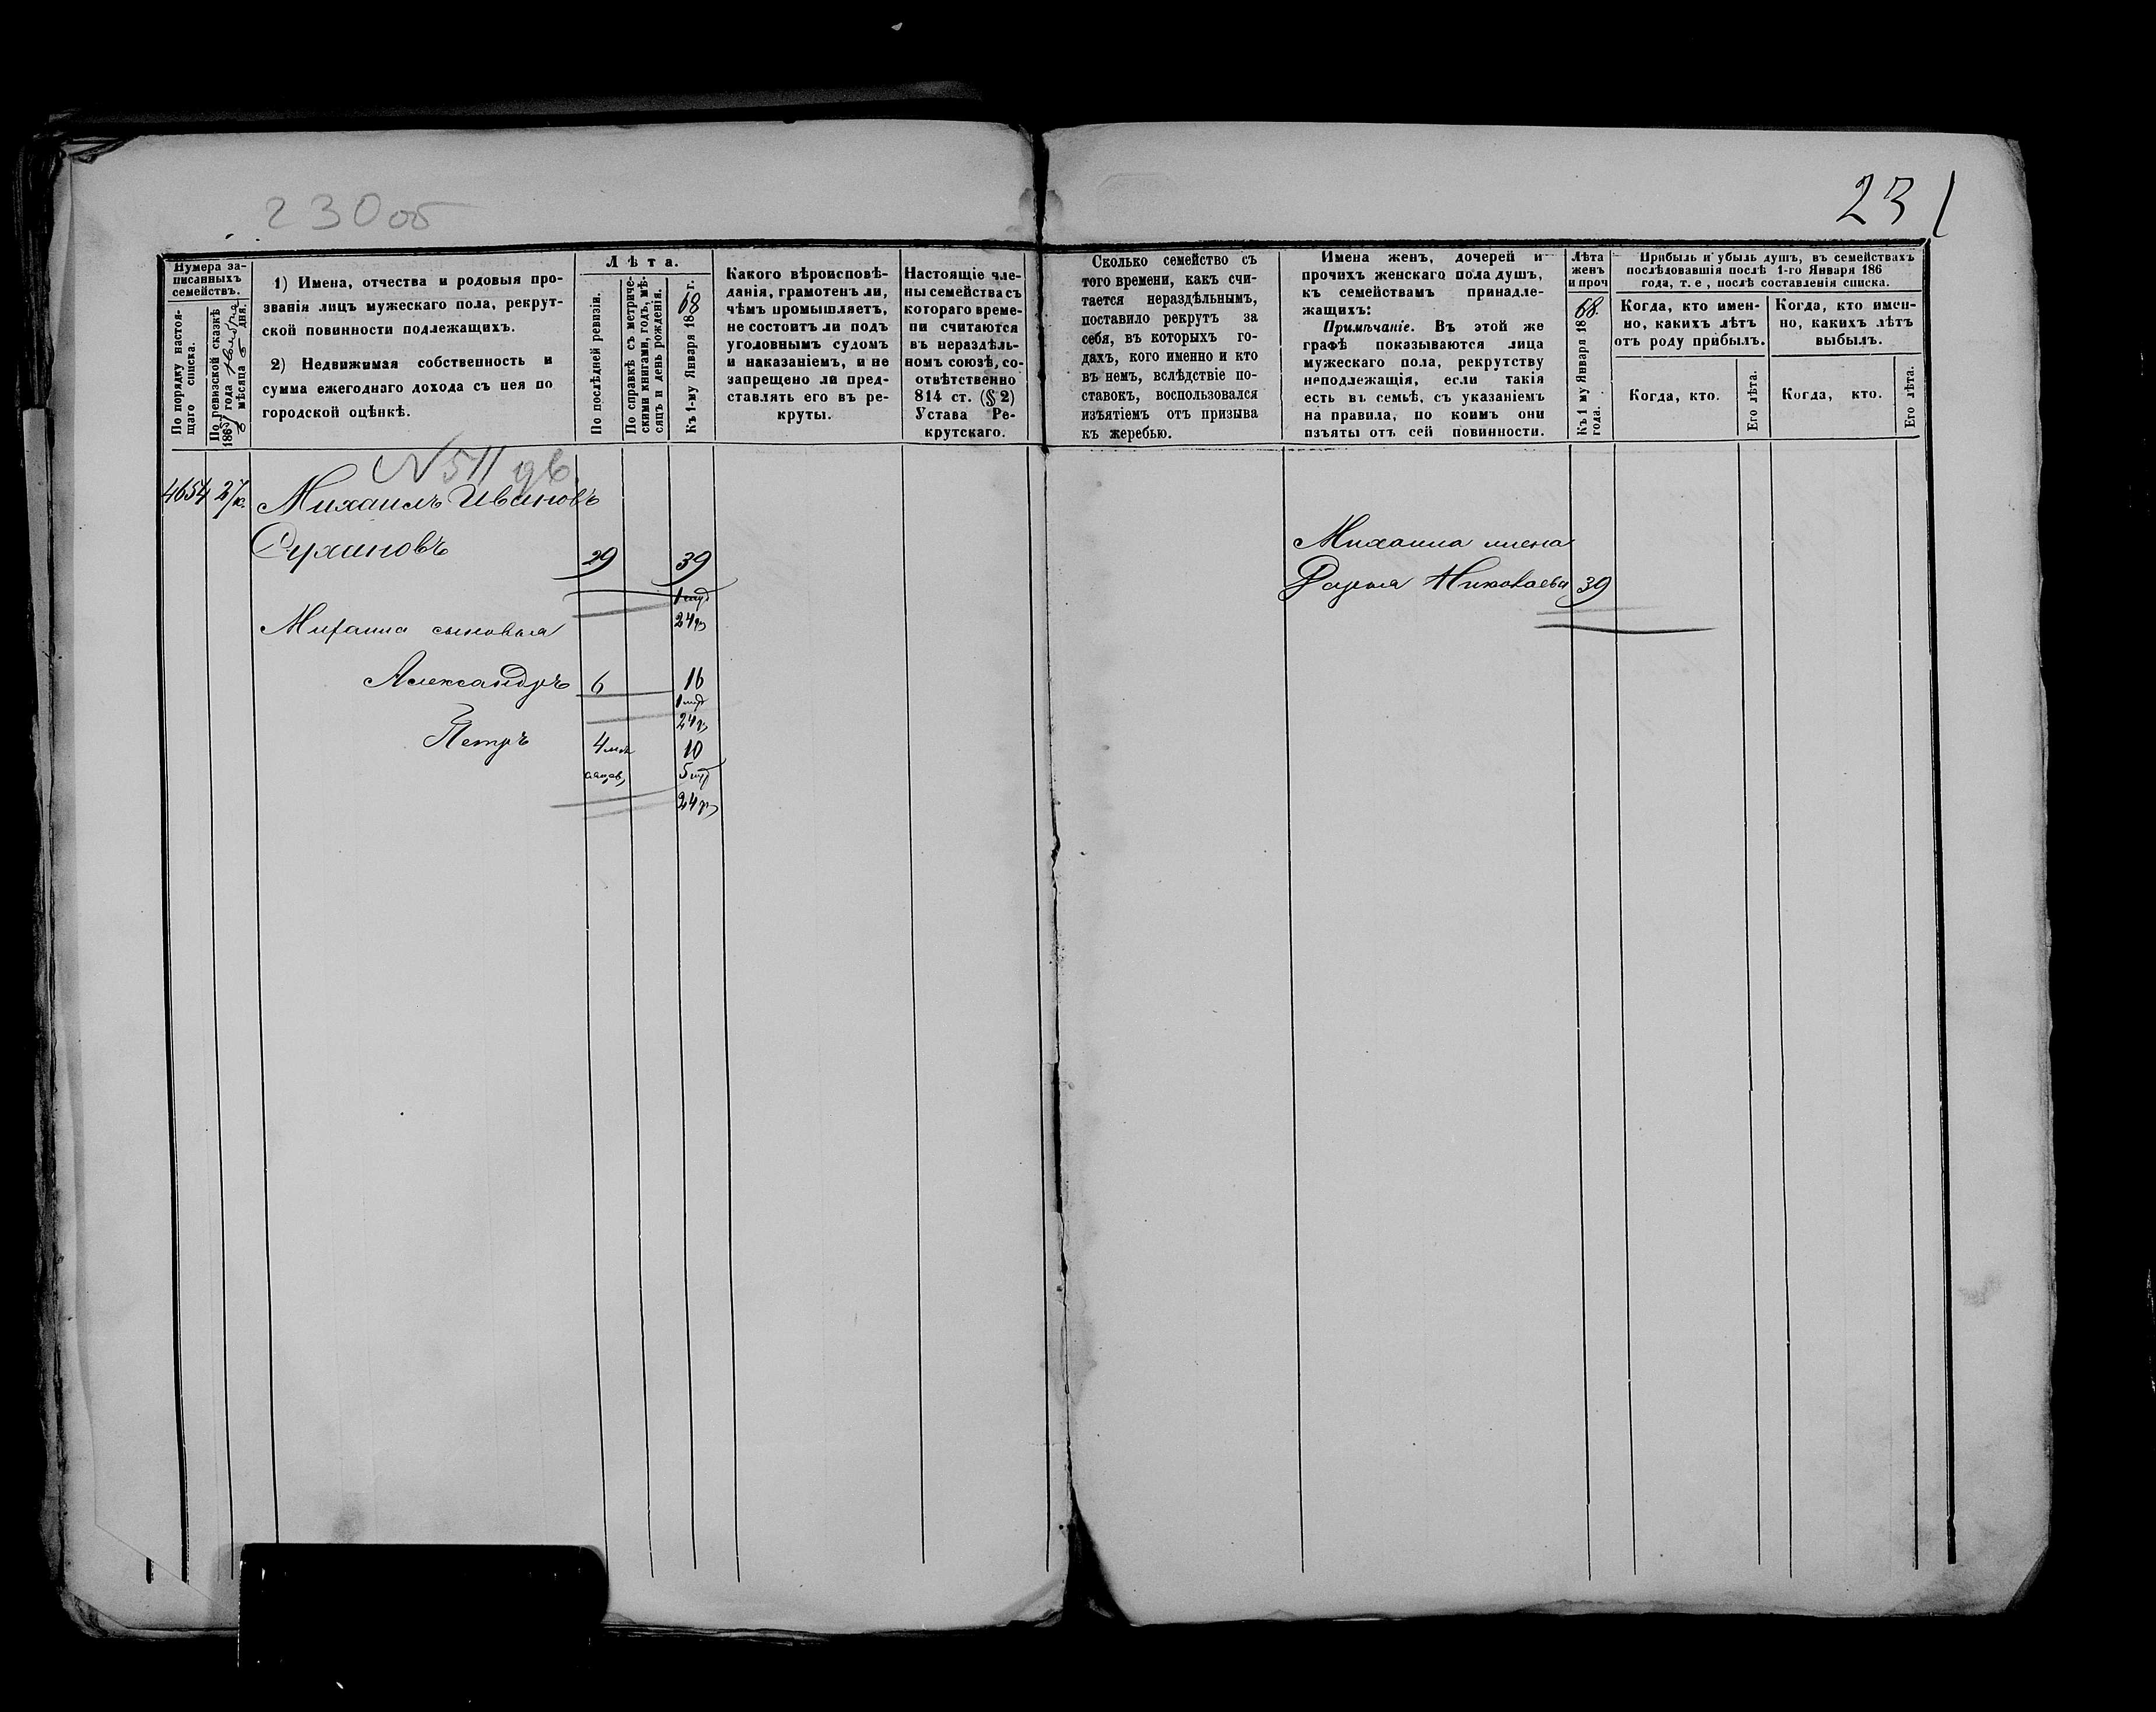 230об
231
Нумера за-
писанныхъ
семействъ.
По порядку настоя-
щаго списка.
По ревизской сказкѣ
мѣсяца
дня.
1) Имена, отчества и родовыя про-
званія лицъ мужескаго пола, рекрут-
ской повинности подлежащихъ.
2) Недвижимая собственность и
сумма ежегоднаго дохода съ нея по
городской оцѣнкѣ.
Лѣта.
По послѣдней ревизіи.
По справкѣ съ метриче-
скими книгами, годъ, мѣ-
сяцъ и день рожденія.
Къ 1-му Января 1868 г.
Какого вѣроисповѣ-
данія, грамотенъ ли,
чѣмъ промышляетъ,
не состоитъ ли подъ
уголовнымъ судомъ
и наказаніемъ, и не
запрещено ли пред-
ставлять его въ ре-
круты.
Настоящіе чле-
ны семейства съ
котораго време-
ни считаются
въ нераздѣль-
номъ союзѣ, со-
отвѣтственно
814 ст. (§ 2)
Устава Ре-
крутскаго.
Сколько семейство съ
того времени, какъ счи-
тается нераздѣльнымъ,
поставило рекрутъ за
себя, въ которыхъ го-
дахъ, кого именно и кто
въ немъ, вслѣдствіе по-
ставокъ, воспользовался
изъятіемъ отъ призыва
къ жеребью.
Имена женъ, дочерей и
прочихъ женскаго пола душъ,
къ семействамъ принадле-
жащихъ:
Примѣчаніе. Въ этой же
графѣ показываются лица
мужескаго пола, рекрутству
неподлежащія, если такія
есть въ семьѣ, съ указаніемъ
на правила, по коимъ они
изъяты отъ сей повинности.
Лѣта
женъ
и проч
Къ 1 му Января 1868.
года.
Прибыль и убыль душъ, въ семействахъ
послѣдовавшія послѣ 1-го Января 186
года, т. е , послѣ составленія списка.
Когда, кто имен-
но, какихъ лѣтъ
отъ роду прибылъ.
Когда, кто имен-
но, какихъ лѣтъ
выбылъ.
Когда, кто.
Его лѣта.
Когда, кто.
Его лѣта.
N 511
4654 27/к. Михаилъ Ивановъ
Сухановъ 29 39
Михаила жена
Николаева 39
Михаила сыновья
Александръ 6 16
Петръ 4 мѣ 10
сяцев